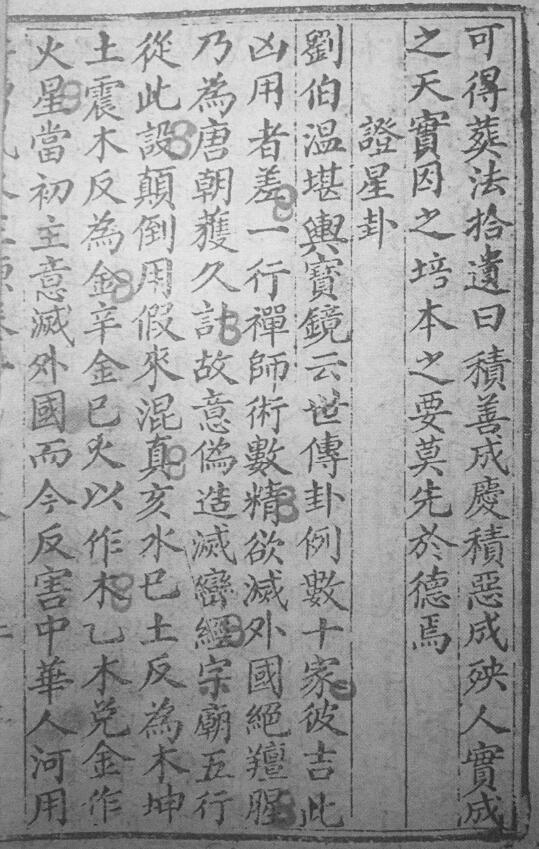 可得葬法拾遺曰積善成慶積惡成殃人實成
之天實因之培本之要莫先於德焉
證星卦
劉伯溫堪輿寶鏡云世傳卦例數十家彼吉此
凶用者差一行禪師術數精欲滅外國絕羶腥
乃為唐朝獲久計故意偽造滅巒經宗廟五行
從此設顛倒用假來混真亥水巳土反為木坤
土震木反為金辛金巳火以作木乙木兌金作
火星當初主意滅外國而今反害中華人河用